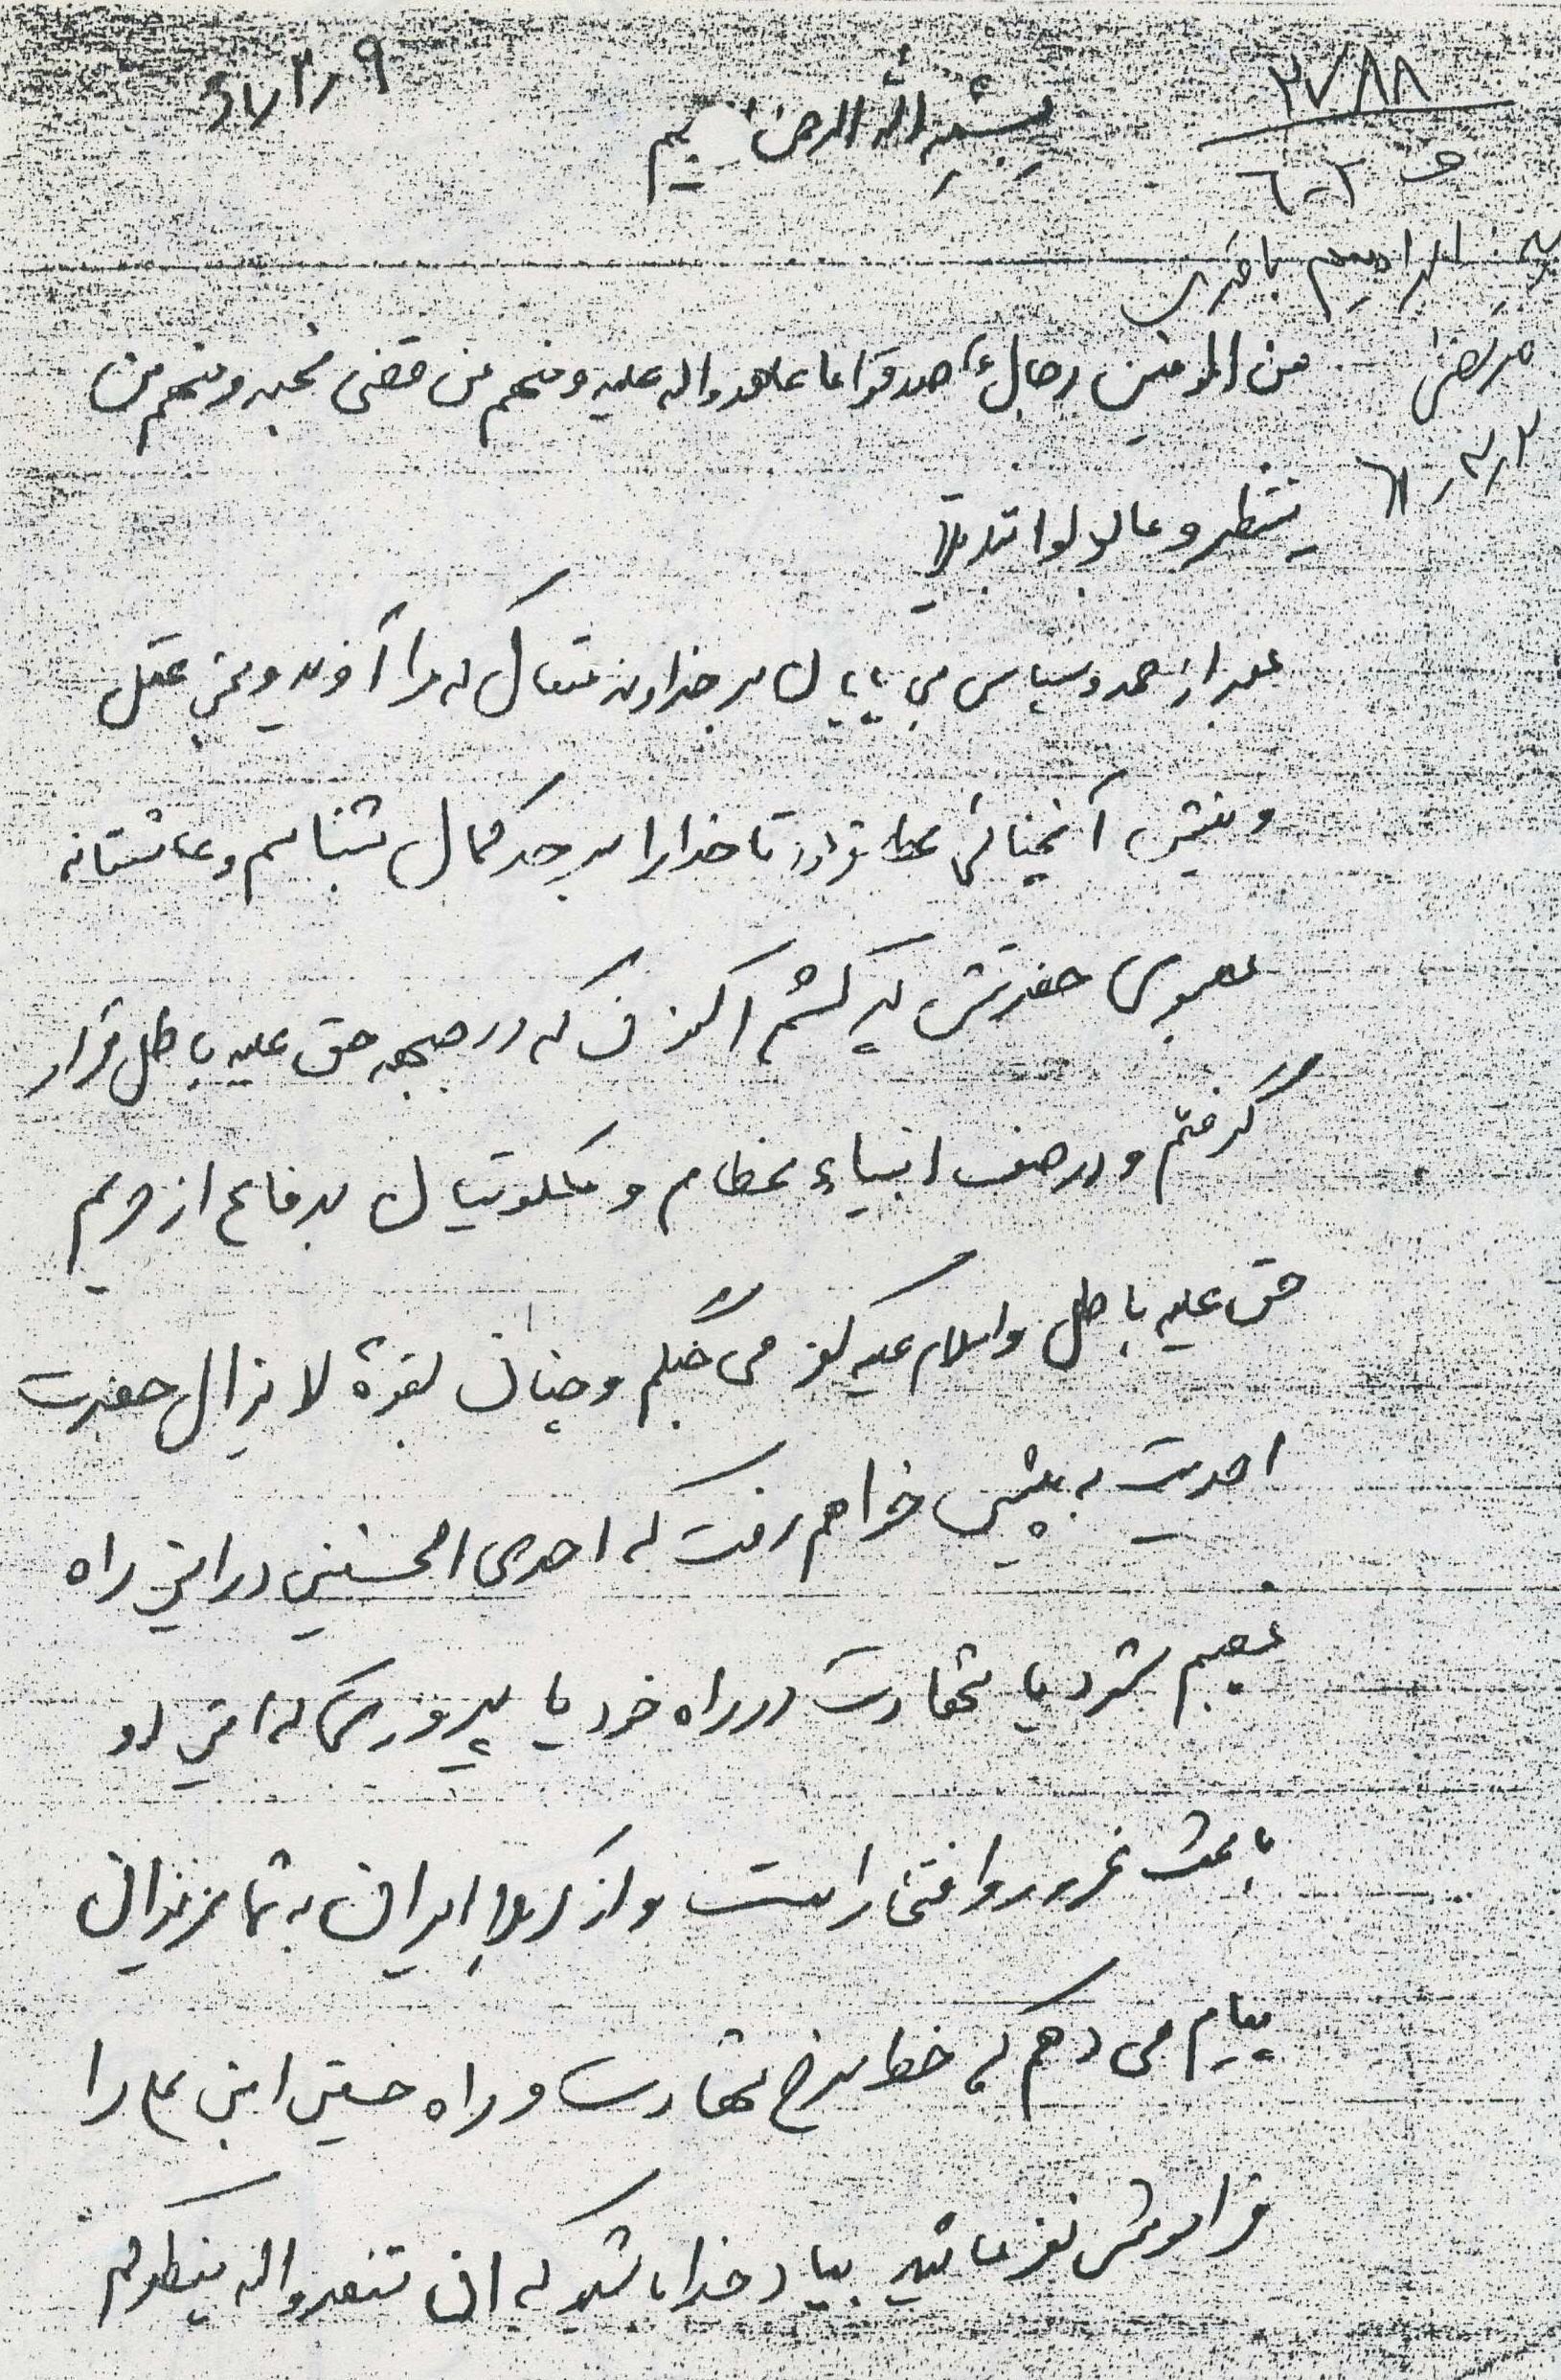 ۲۷۸۸
بسم الله الرحمن الرحیم
ابراهیم باقری
مرتضی
من المؤمنین رجالٌ صدقوا ما عاهدوا اله علیه و منهم من قضی نحبه و منهم من
ینتظر و ما بدلوا تبدیلا
بعد از حمد و سپاس بی پایان بر خداوند متعال که مرا آفرید و بمن عقل
و بینش آنچنانی عطا فرمود تا خدا را بر حد کمال بشناسم و عاشقانه
بسوی حضرتش پر کشم اکنون که در جبهه حق علیه باطل قرار
گرفتم و در صف انبیاء عظام و ملکوتیان بدفاع از حریم
حق علیه باطل و اسلام علیه کفر می جنگم و چنان بقوهٔ لا یزال حضرت
احدیت به پیش خواهم رفت که احدی الحسنیین در این راه
نصیبم شود یا شهادت در راه خود یا پیروزی که این دو
باعث غرور و افتخار است و از کربلای ایران به شما عزیزان
پیام می دهم که خط سرخ شهادت و راه حسین ابن علی را
فراموش نفرمائید بیاد خدا باشید که ان تنصرو اله ینصرکم